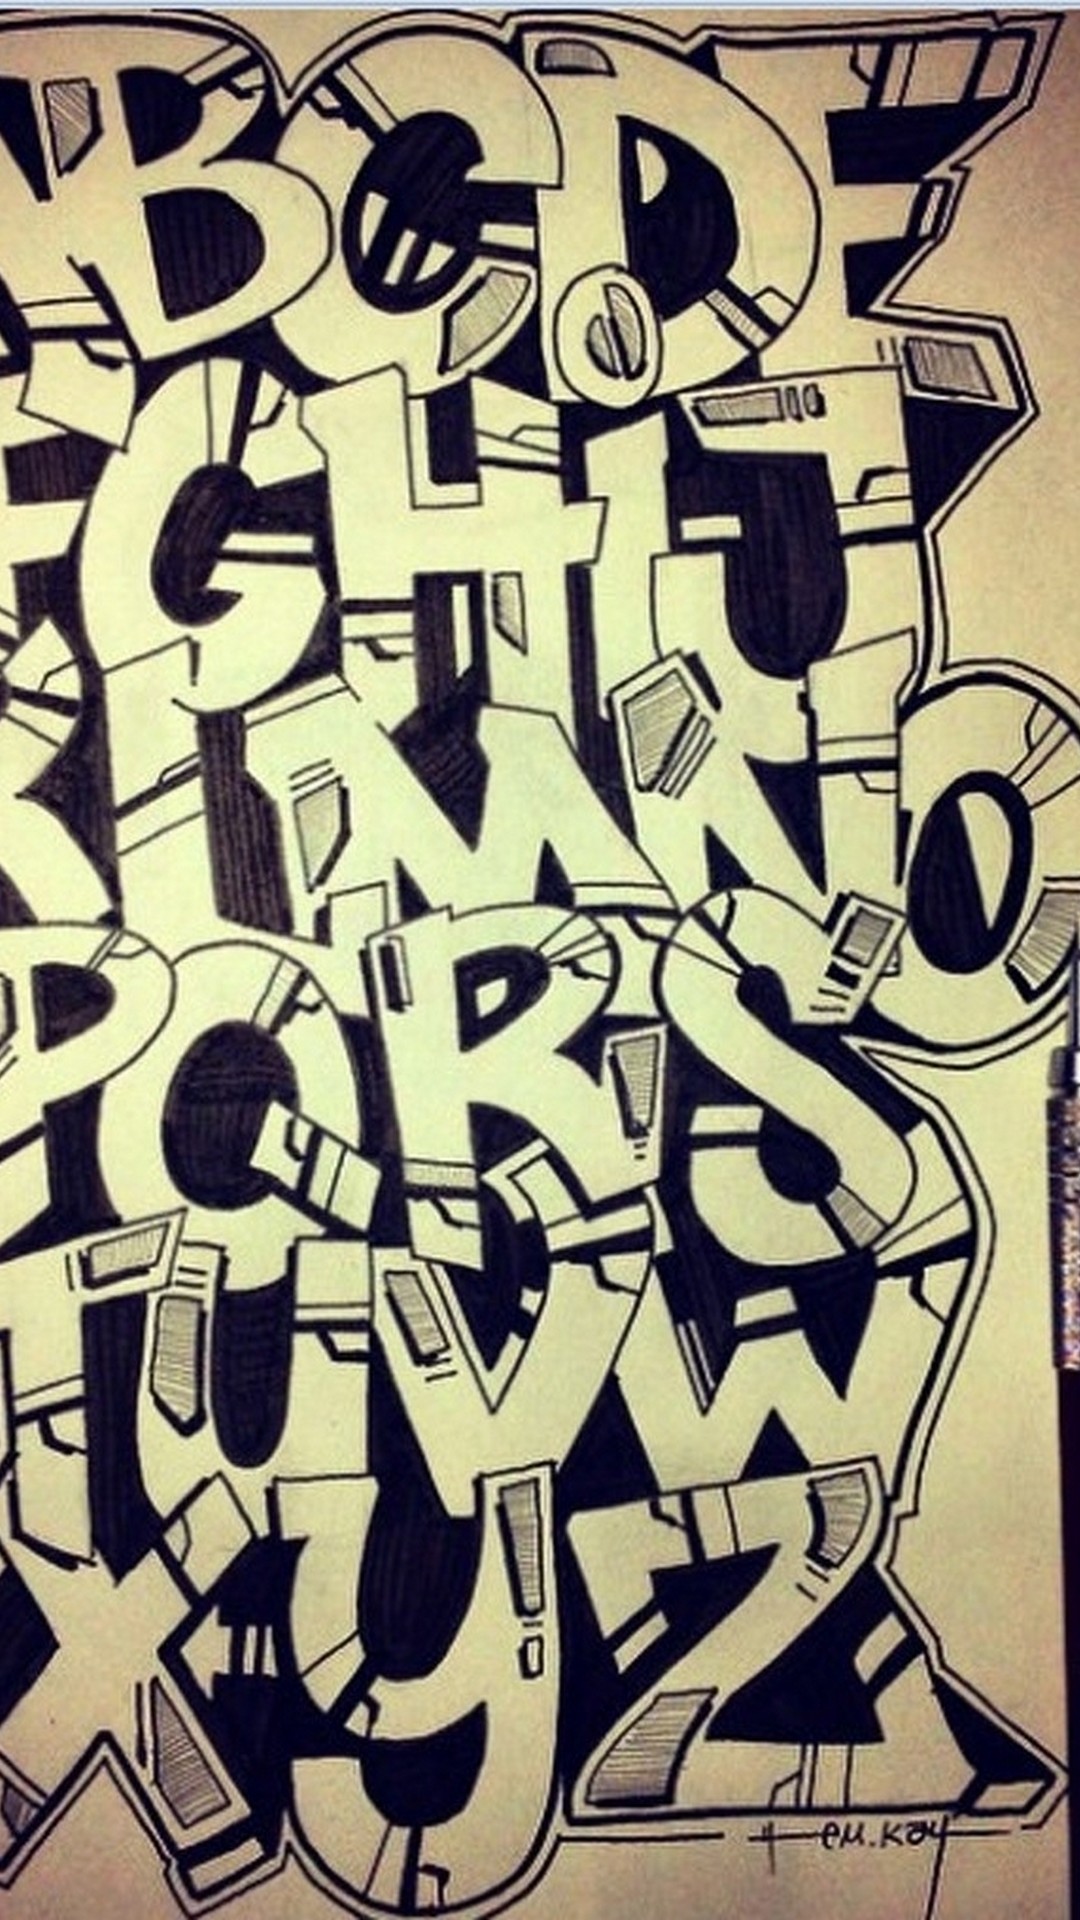 ABCDE
FGHIJ
KLMNO
PQRS
TUVW
XYZ
em.kay